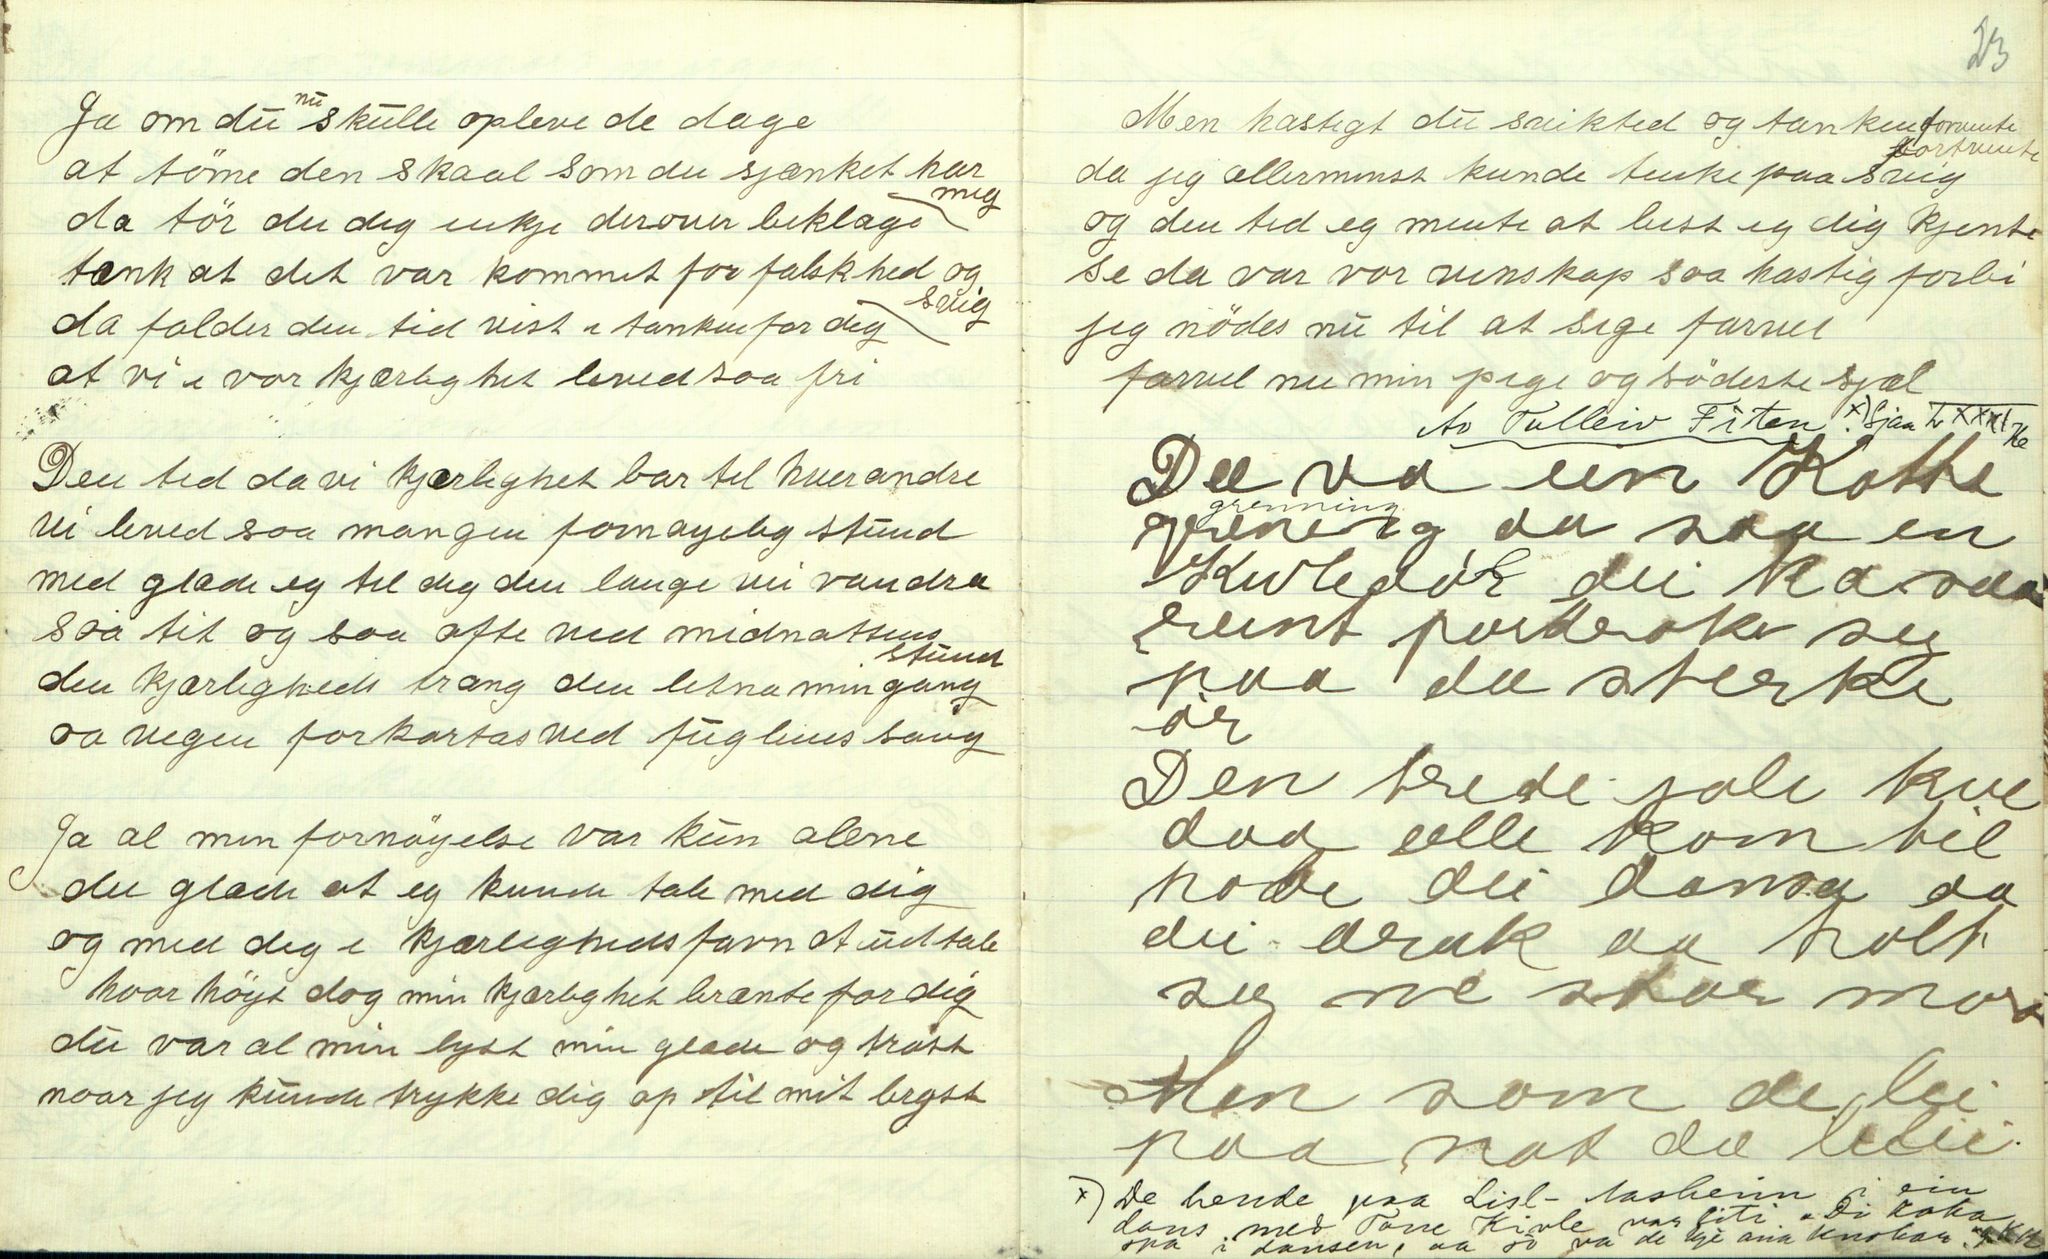 Ja om du nu skulle opleve de dage
at töme den skaal som du sjænket har mig
da tör du dig inkje derover beklage
tænk at det var kommet for falskhed og svig
da falder den tid vist i tanken for dig
at vi i vor kjærlighet leved saa fri
Den tid da vi kjærlighet bar til hverandre
vi leved saa mangen fornøyelig stund
med glæde eg til dig den lange vei vandra
saa tit og saa ofte ved midnattens stund
den kjærligheds trang den letna min gang
oa vegen forkortas ved fuglens sang
Ja al min fornöyelse var kun alene
den glæde at eg kunde tale med dig
og med dig i kjærlighedsfavn at udtale
hvor höyt dog min kjærlighet brænte for dig
du var al min lyst min glæde og tröst
naar jeg kunde trykke dig op til mit bryst
23
Men hastigt du svikted og tanken forvente
da jeg allerminst kunde tenke paa svig
og den tid eg mente at best eg dig kjente
se da var vor venskap saa hastig forbi
jeg nödes nu til at sige farvel
farvel nu min pige og södeste sjæl
Av Tulleiv Fiten x) Sjaa
Dee va ein Kotte
grenning
grenerg aa saa en
Kivledöl dei ka vaa
reint
paa da sterke
ör
Den trede jole kve
daa elle kom til
hove dei dansa aa
dei drak aa holt
seg ve stor mora
Men som de lei
paa nat da blei
x) De hende paa Lisl- i ein
dans med Tone Kivle var liti. Di
spa i dansen, aa so va de kje ana